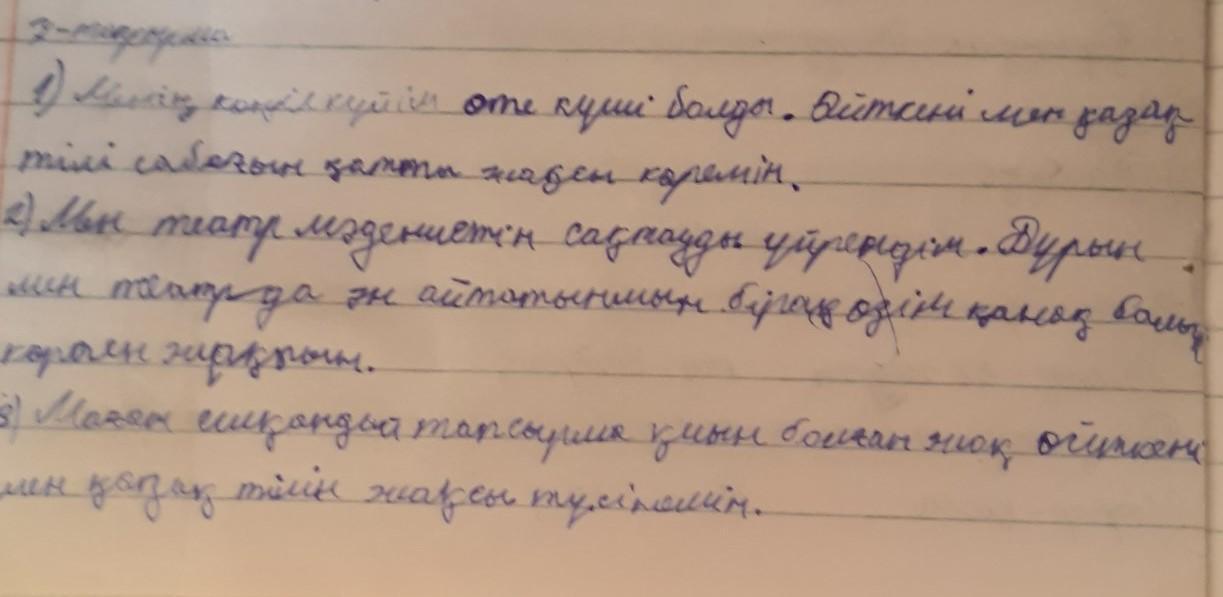 3-тапсырма
1) Менің көңіл күйім өте күші болды. Өйткені мен қазақ
тілі сабағын қатты жақсы көремін.
2) Мен театр мәдениетін сақтауды үйрендім. Бұрын
мен театрда ән айтатынмын бірақ өзім қонақ болып
көрген жоқпын.
3) Маған ешқандай тапсырма қиын болған жоқ өйткені
мен қазақ тілін жақсы түсінемін.